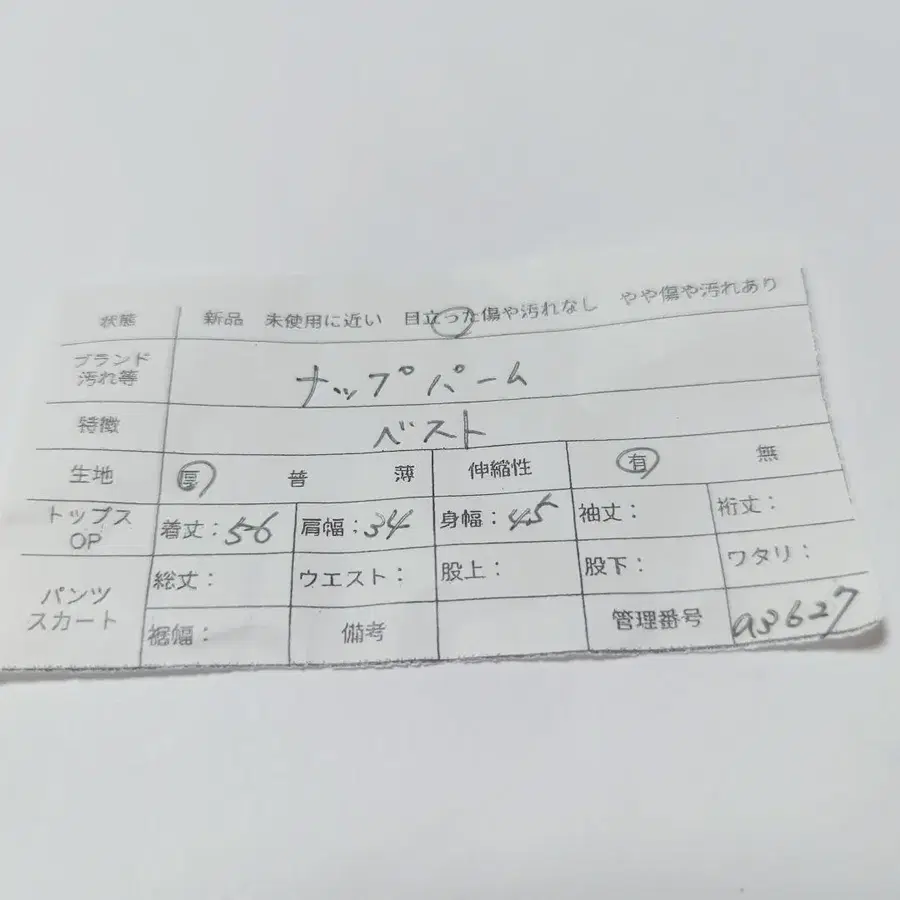 状態 新品 未使用に近い 目立った傷や汚れなし やや傷や汚れあり
ブランド
汚れ等 ナップパーム
特徴 ベスト
生地 厚 普 薄 伸縮性 有 無
トップス
OP 着丈:56 肩幅:34 身幅:45 袖丈: 裄丈:
パンツ
スカート 総丈: ウエスト: 股上: 股下: ワタリ:
裾幅: 備考 管理番号 a3627